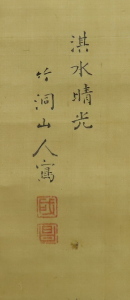 淇水晴光
竹洞山人寫